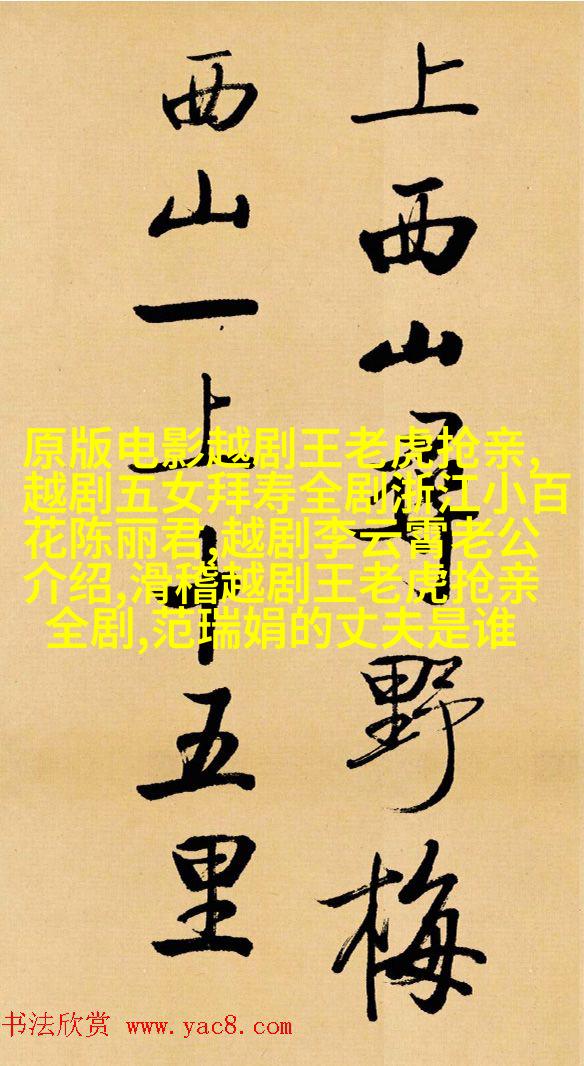 上西山尋野梅
西山一上十五里
原版电影越剧王老虎抢亲,
越剧五女拜寿全剧浙江小百
花陈丽君,越剧李云霄老公
介绍,滑稽越剧王老虎抢亲
全剧,范瑞娟的丈夫是谁
书法欣赏 www.yac8.com